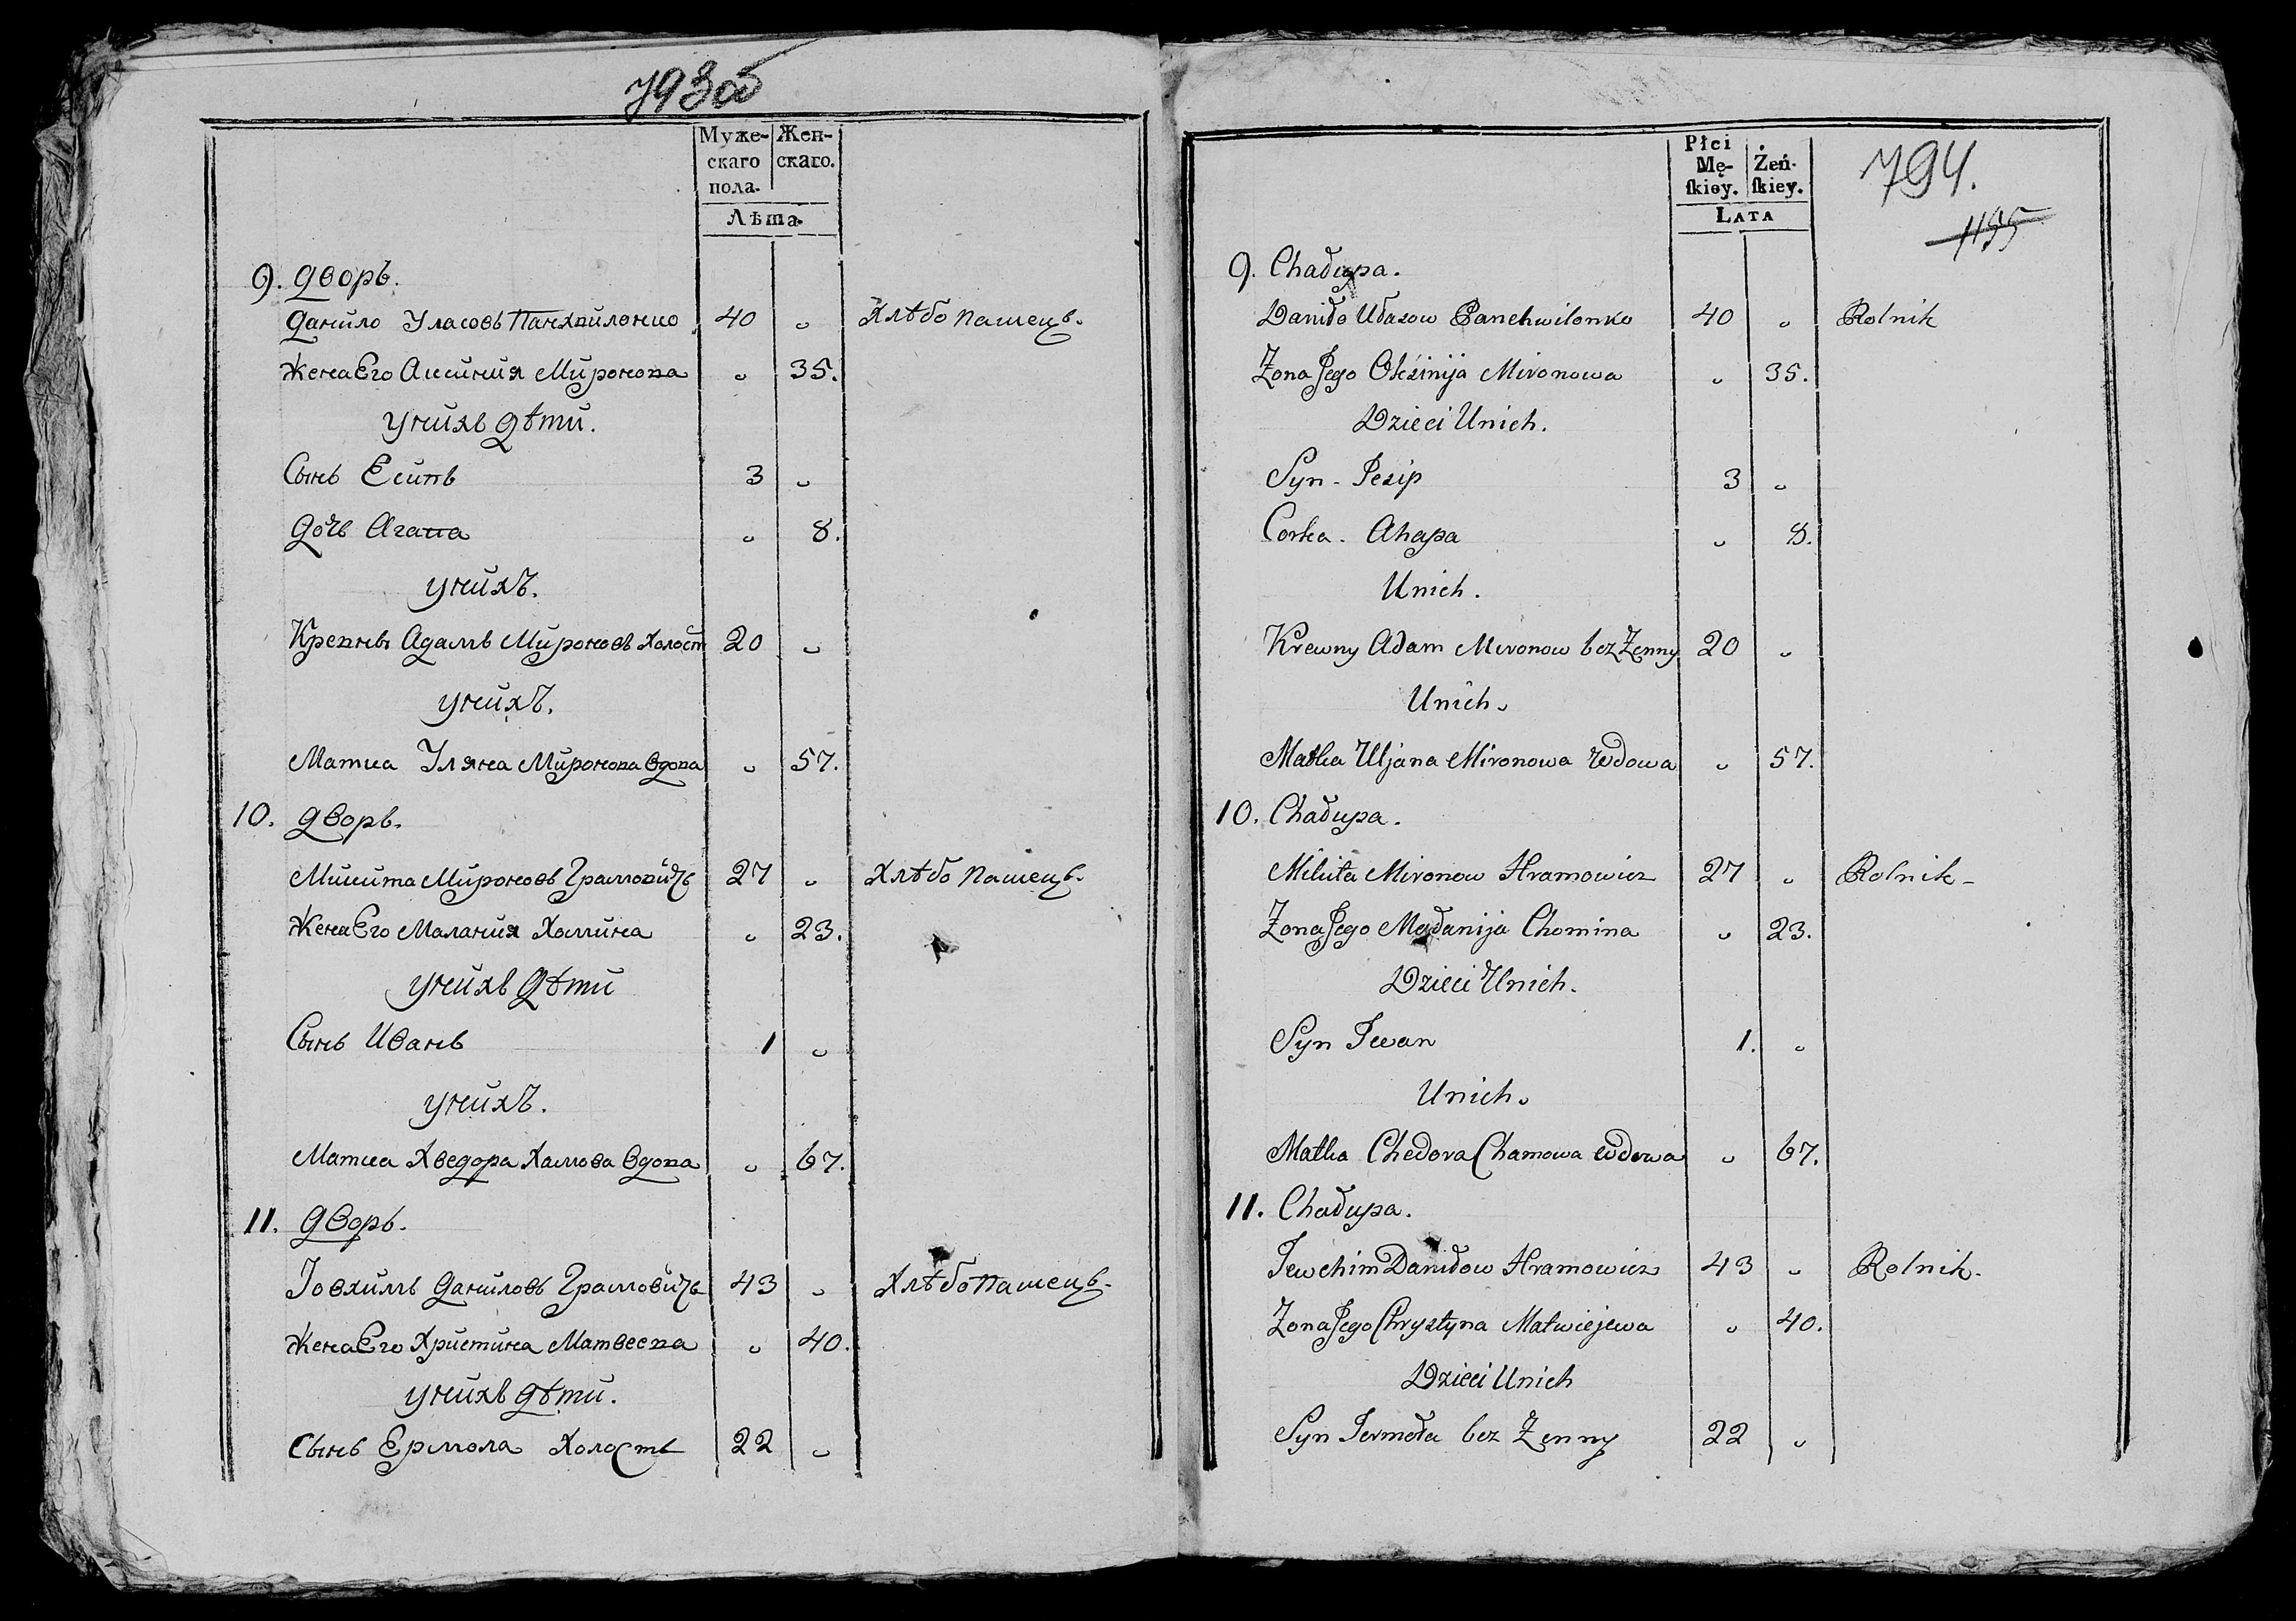 793об
Муже- Жен-
скаго скаго.
пола.
Лѣта.
9. дворъ.
Данило Уласовъ Панхвиленко 40 „ Хлѣбопашецъ.
Жена Его Аксиния Миронова „ 35.
У нихъ дѣти.
Сынъ Есипъ 3 „
Дочь Агапа „ 8.
У нихъ.
Кревны Адамъ Мироновъ холост 20 „
У нихъ.
Матка Уляна Миронова вдова „ 57.
10. дворъ.
Микита Мироновъ Грамовичъ 27 „ Хлѣбопашецъ.
Жена Его Малания Хамина „ 23.
У нихъ Дѣти
Сынъ Иванъ 1 „
У нихъ.
Матка Хведора Хамова вдова „ 67.
11. дворъ.
Іовхимъ Даниловъ Грамовичъ 43 „ Хлѣбопашецъ.
Жена Его Христина Матвеева „ 40.
У нихъ дѣти.
Сынъ Ермола холостъ 22 „
Płci Żeń-
Mę- skiey.
skiey.
LATA
794.
1195
9. Chałupa.
Daniło Ułasow Panchwilonko 40 „ Rolnik
Żona Jego Oksinija Mironowa „ 35.
Dzieci Unich.
Syn - Jesip 3 „
Corka - Ahapa „ 8.
Unich.
Krewny Adam Mironow bez Żenny 20 „
Unich.
Matka Uljana Mironowa wdowa „ 57.
10. Chałupa.
Mikita Mironow Hramowicz 27 „ Rolnik -
Żona Jego Małanija Chomina „ 23.
Dzieci Unich.
Syn Iwan 1. „
Unich.
Matka Chedora Chamowa wdowa „ 67.
11. Chałupa.
Jewchim Daniłow Hramowicz 43 „ Rolnik.
Żona Jego Chrystyna Matwiejewa „ 40.
Dzieci Unich
Syn Jermoła bez Żenny 22 „